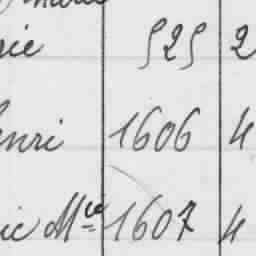 rie 525 2
enri 1606 4
ie Mie 1607 4